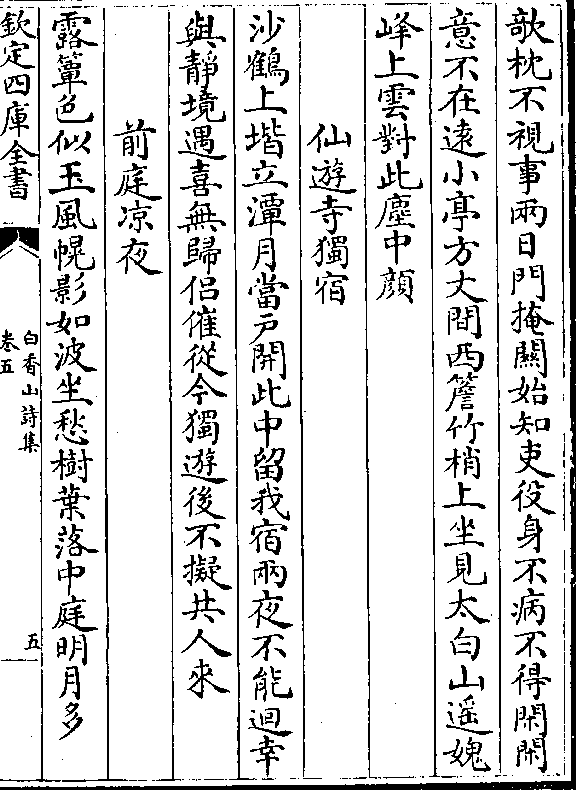 欹枕不視事兩日門掩關始知吏役身不病不得閑閑
意不在遠小亭方丈間西簷竹梢上坐見太白山遥媿
峰上雲對此塵中顔
仙遊寺獨宿
沙鶴上堦立潭月當戸開此中留我宿兩夜不能迴幸
與靜境遇喜無歸侣催從今獨遊後不擬共人來
前庭凉夜
露簟色似玉風幌影如波坐愁樹葉落中庭明月多
欽定四庫全書
白香山詩集
卷五
五